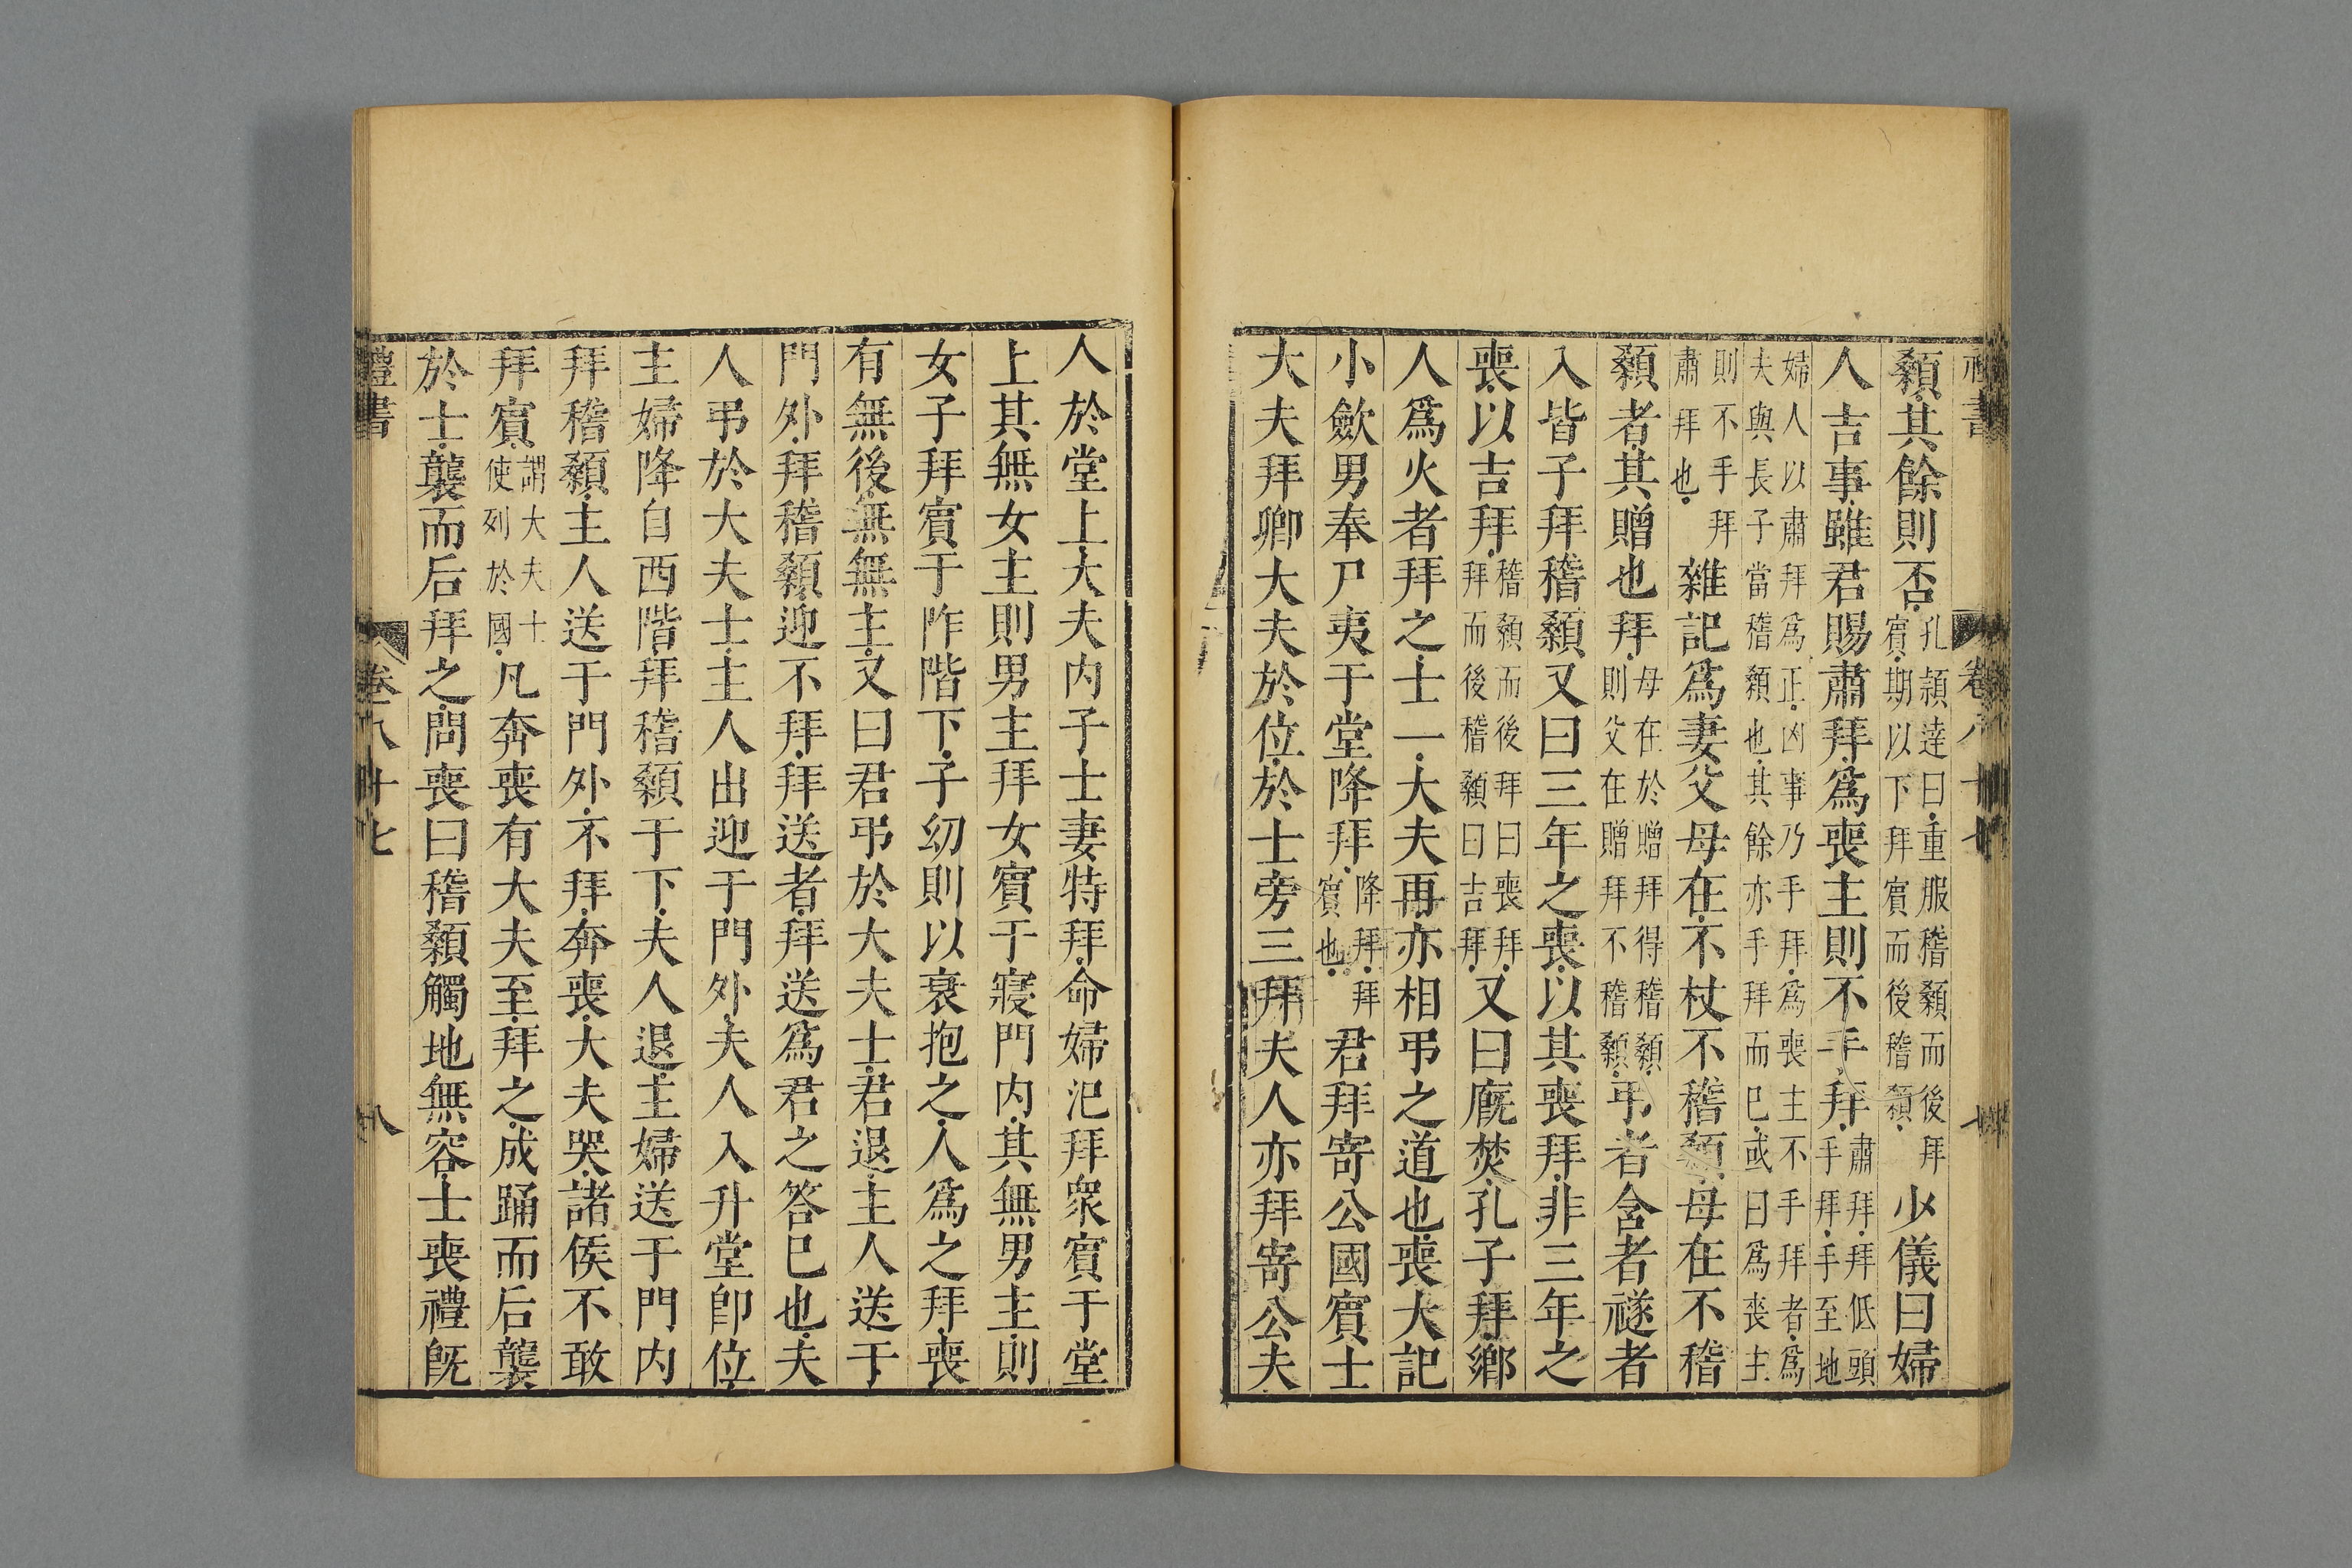 禮書 卷八十七 七
顙其餘則否孔頴逹曰重服稽顙而後拜賔期以下拜賔而後稽顙少儀曰婦
人吉事雖君賜肅拜爲喪主則不手拜肅拜拜低頭手拜手至地
婦人以肅拜爲正凶事乃手拜爲喪主不手拜者爲夫與長子當稽顙也其餘亦手拜而巳或曰爲喪主
則不手拜肅拜也雜記爲妻父母在不杖不稽顙母在不稽
顙者其贈也拜母在於贈拜得稽顙則父在贈拜不稽顙弔者含者襚者
入皆子拜稽顙又曰三年之喪以其喪拜非三年之
喪以吉拜稽顙而後拜曰喪拜拜而後稽顙曰吉拜又曰廐焚孔子拜鄉
人爲火者拜之士一大夫再亦相弔之道也喪大記
小歛男奉尸夷于堂降拜降拜拜賔也君拜寄公國賔士
大夫拜卿大夫於位於士旁三拜夫人亦拜寄公夫
人於堂上大夫内子士妻特拜命婦汜拜衆賔于堂
上其無女主則男主拜女賔于寢門内其無男主則
女子拜賔于阼階下子幼則以衰抱之人爲之拜喪
有無後無無主又曰君弔於大夫士君退主人送于
門外拜稽顙迎不拜拜送者拜送爲君之答巳也夫
人弔於大夫士主人出迎于門外夫人入升堂卽位
主婦降自西階拜稽顙于下夫人退主婦送于門内
拜稽顙主人送于門外不拜奔喪大夫哭諸侯不敢
拜賔謂大夫士使列於國凡奔喪有大夫至拜之成踊而后襲
於士襲而后拜之問喪曰稽顙觸地無容士喪禮旣
禮書 卷八十七 八